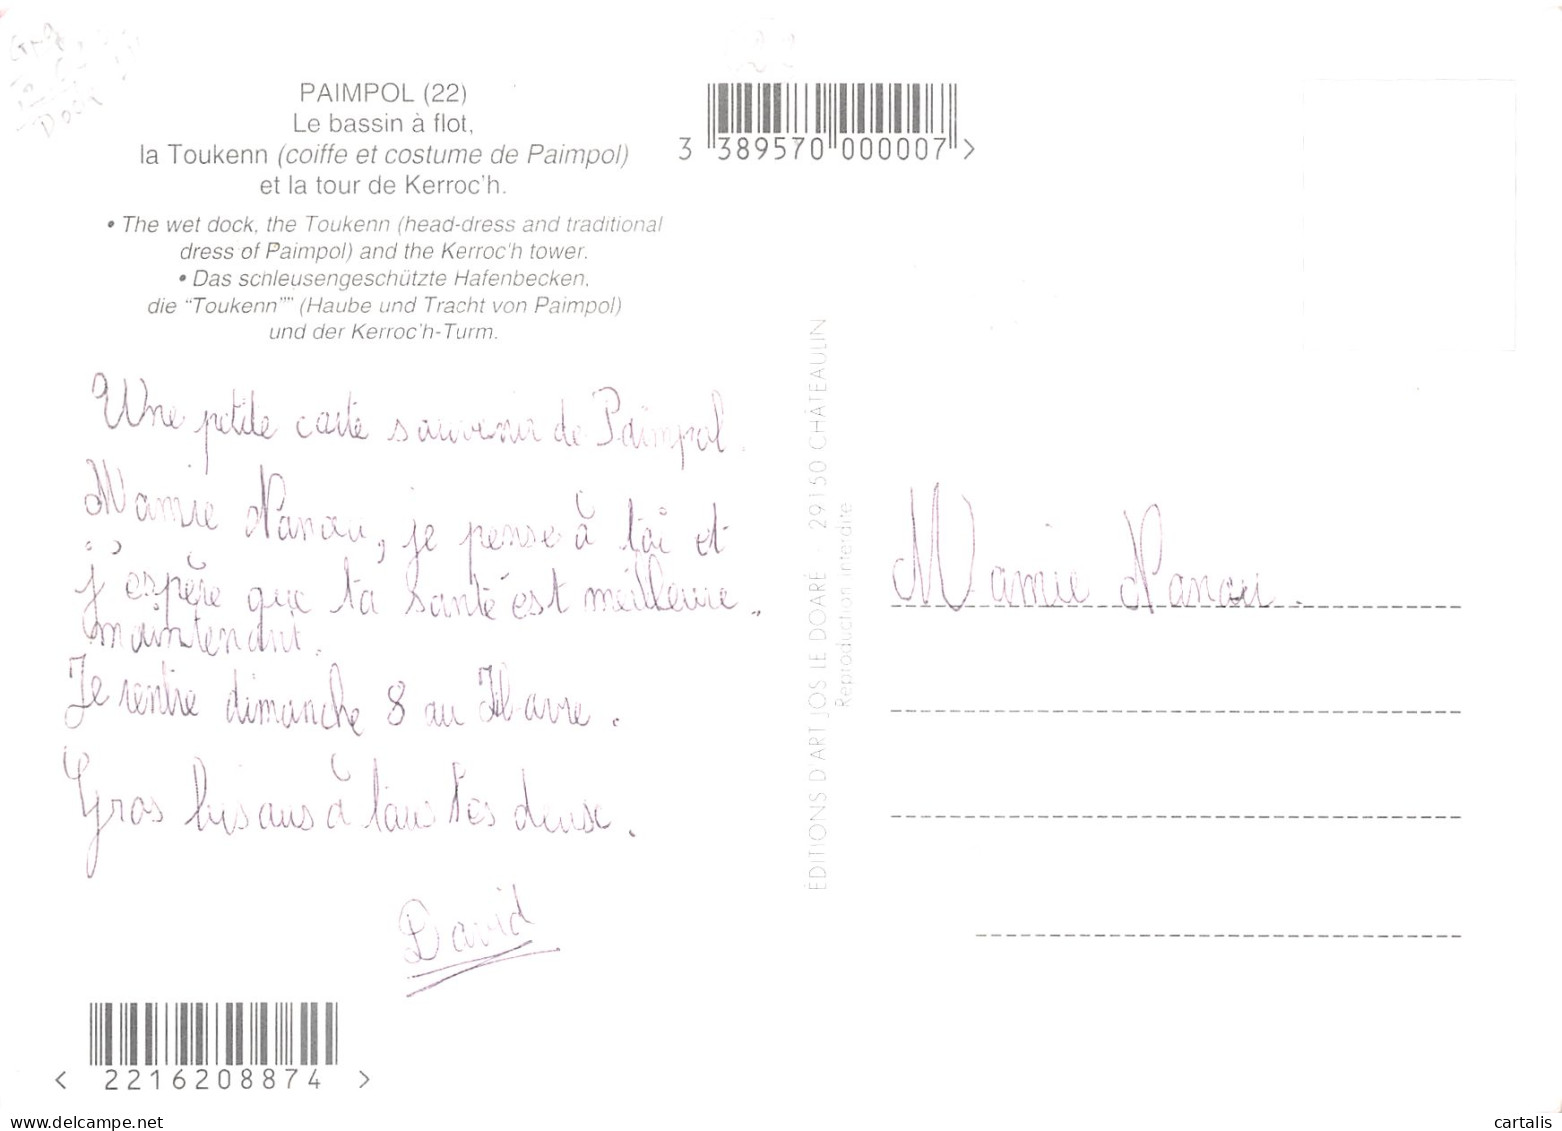 PAIMPOL (22)
Le bassin à flot,
la Toukenn (coiffe et costume de Paimpol)
et la tour de Kerroc'h.
• The wet dock, the Toukenn (head-dress and traditional
dress of Paimpol) and the Kerroc'h tower.
• Das schleusengeschützte Hafenbecken,
die "Toukenn"" (Haube und Tracht von Paimpol)
und der Kerroc'h-Turm.
3 389570 000007 >
Une petite carte souvenir de Paimpol.
Mamie Nanou, je pense à toi et
j'espère que ta santé est meilleure
maintenant.
Je rentre dimanche 8 au Havre.
Gros bisous à tous les deux.
David
< 2216208874 >
ÉDITIONS D'ART JOS LE DOARÉ - 29150 CHÂTEAULIN
Reproduction interdite
Mamie Nanou.
www.delcampe.net
cartalis